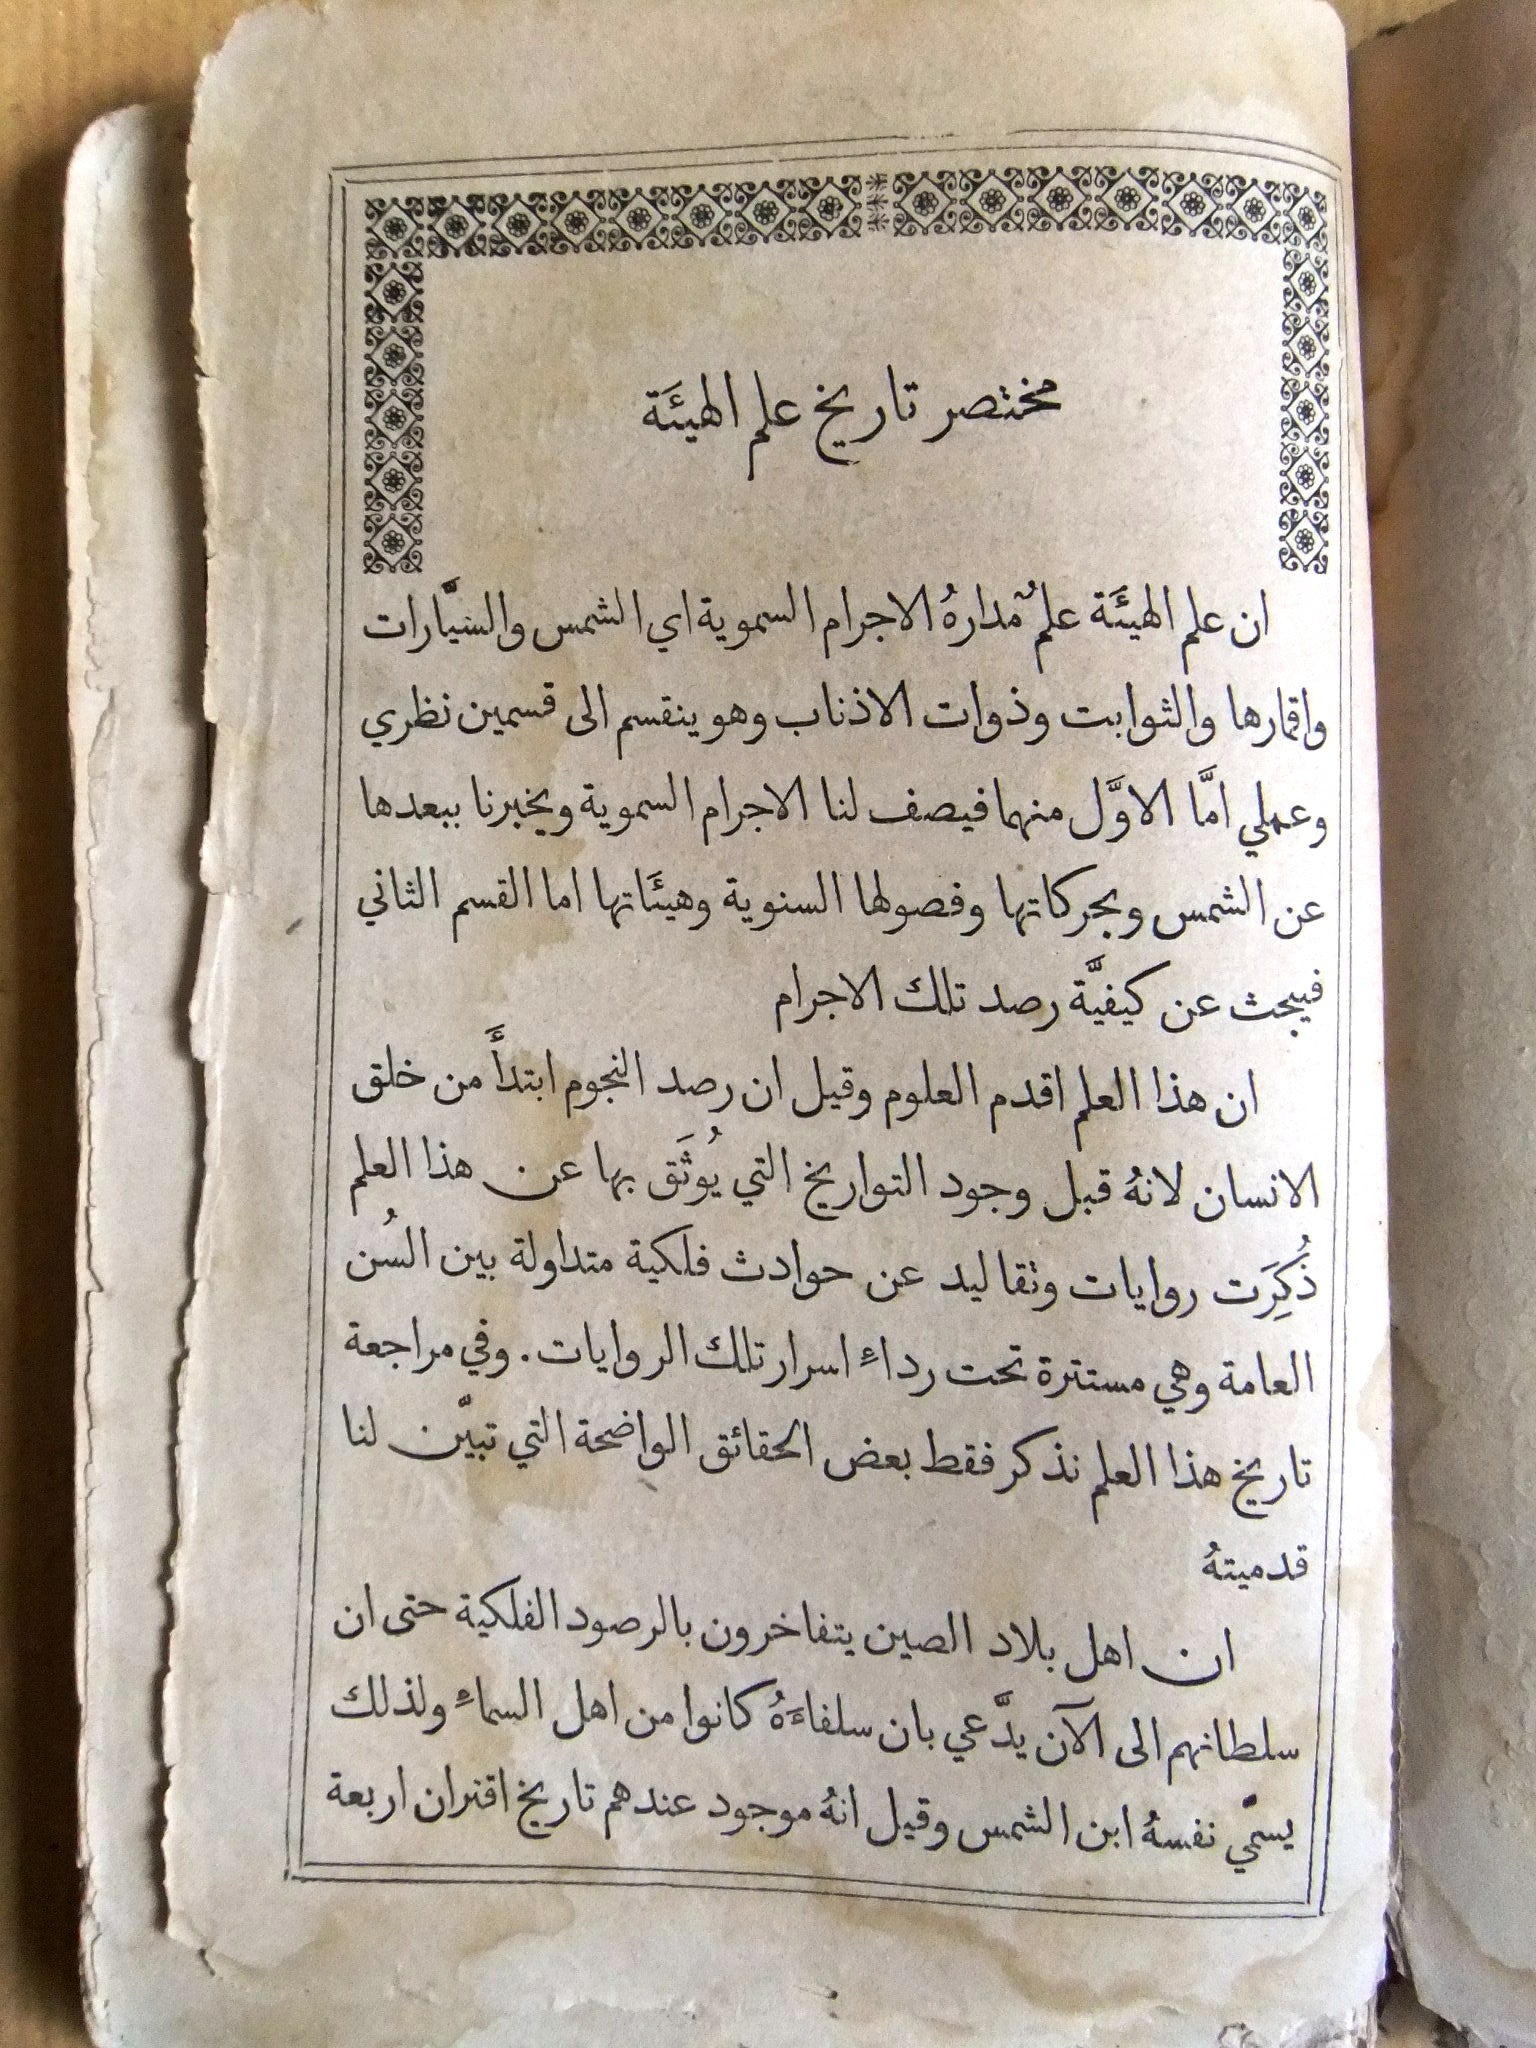 مختصر تاريخ علم الهيئَة
ان علم الهيئَة علمٌ مدارهُ الاجرام السموية اي الشمس والسيَّارات
واقمارها والثوابت وذوات الاذناب وهو ينقسم الى قسمين نظري
وعملي امَّا الاوَّل منهما فيصف لنا الاجرام السموية ويخبرنا ببعدها
عن الشمس وبحركاتها وفصولها السنوية وهيئَاتها اما القسم الثاني
فيبحث عن كيفيَّة رصد تلك الاجرام
ان هذا العلم اقدم العلوم وقيل ان رصد النجوم ابتدأَ من خلق
الانسان لانهُ قبل وجود التواريخ التي يُوثَق بها عن هذا العلم
ذُكِرَت روايات وتقاليد عن حوادث فلكية متداولة بين السُن
العامة وهي مستترة تحت رداءِ اسرار تلك الروايات . وفي مراجعة
تاريخ هذا العلم نذكر فقط بعض الحقائق الواضحة التي تبيّن لنا
قدميتهُ
ان اهل بلاد الصين يتفاخرون بالرصود الفلكية حتى ان
سلطانهم الى الآن يدَّعي بان سلفاءَهُ كانوا من اهل السماءِ ولذلك
يسمّي نفسهُ ابن الشمس وقيل انهُ موجود عندهم تاريخ اقتران اربعة